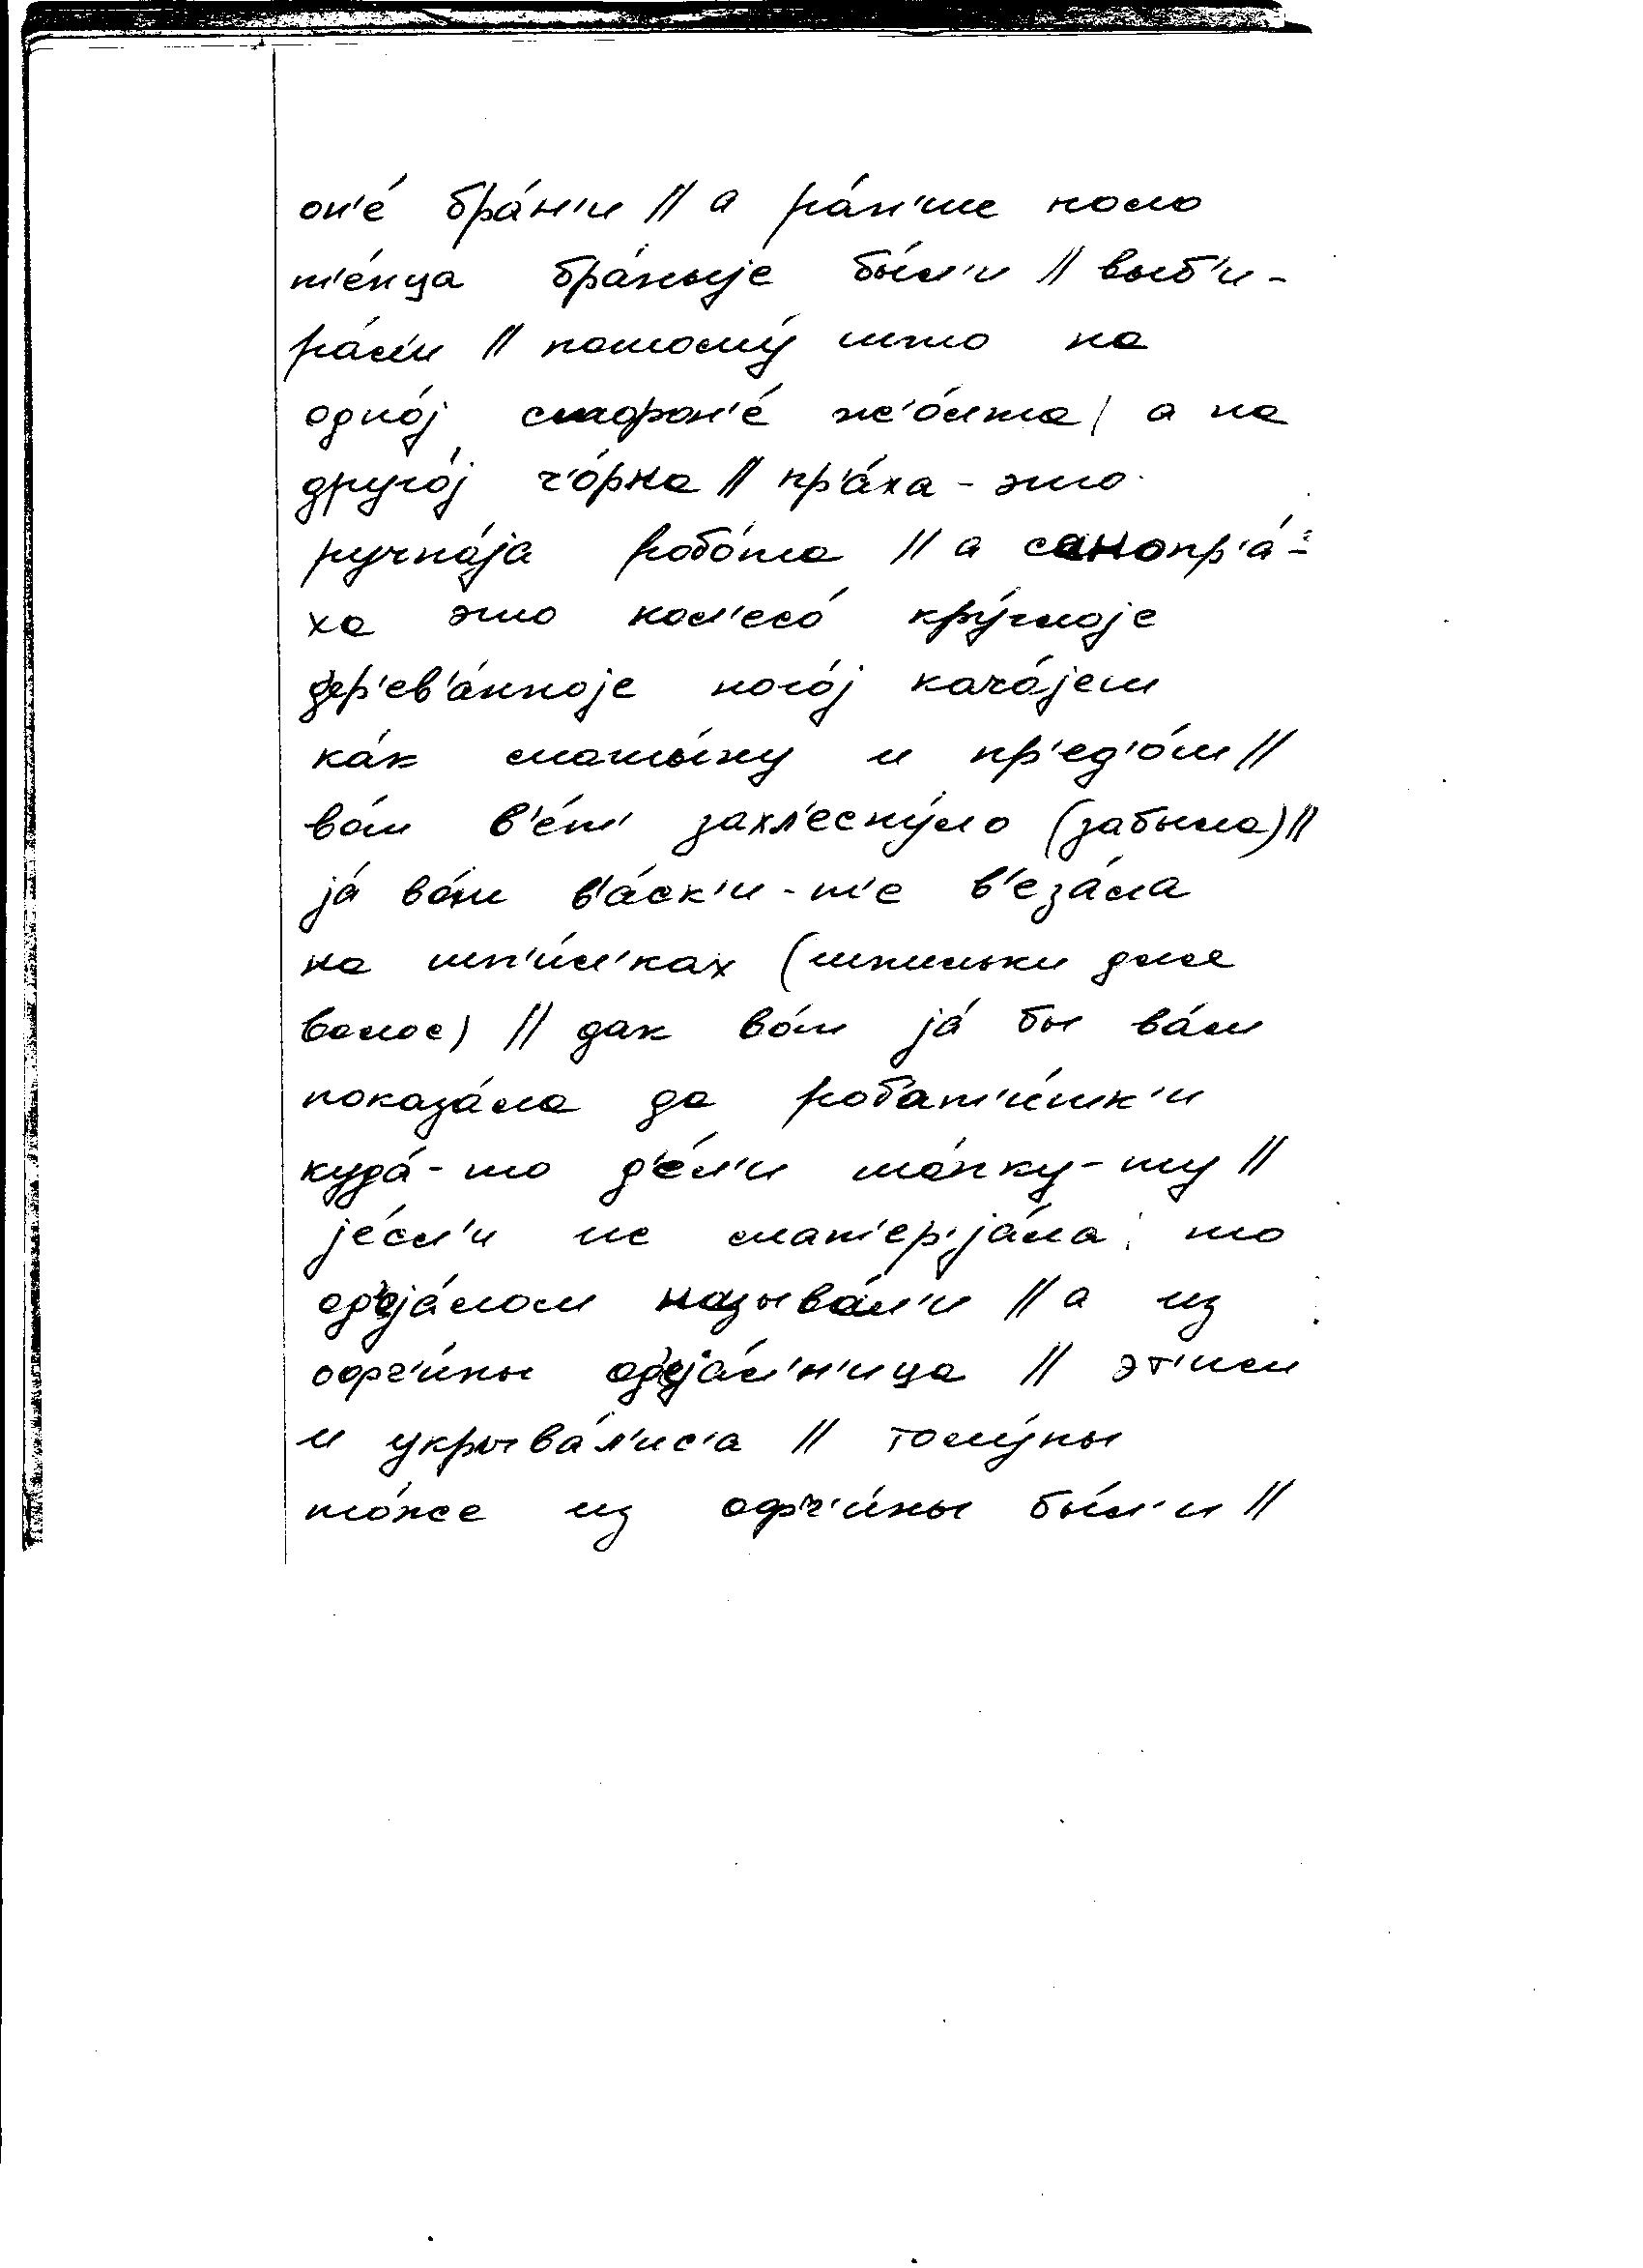 он'е́ бра́н'и // а ра́н'ше поло
т'е́нца бра́ныjе бы́л'и // выб'и-
ра́л'и // потому́ што на
одно́j сторон'е́ ж'о́лта / а на
друго́j ч'о́рна // пр'а́ха - это
ручна́jа робо́та // а самопр'а́-
ха это кол'есо́ кру́глоjе
д'ер'ев'а́нноjе ного́j кача́jет
ка́к машы́ну и пр'ед'о́т //
во́т в'е́т' захл'есну́ло (забыла) //
jа́ во́т в'а́ск'и-т'е в'еза́ла
на шп'и́л'ках (шпильки для
волос) // дак во́т jа́ бы ва́м
показа́ла да робат'и́шк'и
куда́-то д'е́л'и та́пку-ту //
jе́сл'и ис мат'ер'jа́ла, то
од'еjа́лом называ́л'и // а из
офч'и́ны од'еjа́л'н'ица // эт'им
и укрыва́л'ис'а // толу́пы
то́же из офч'и́ны бы́л'и //